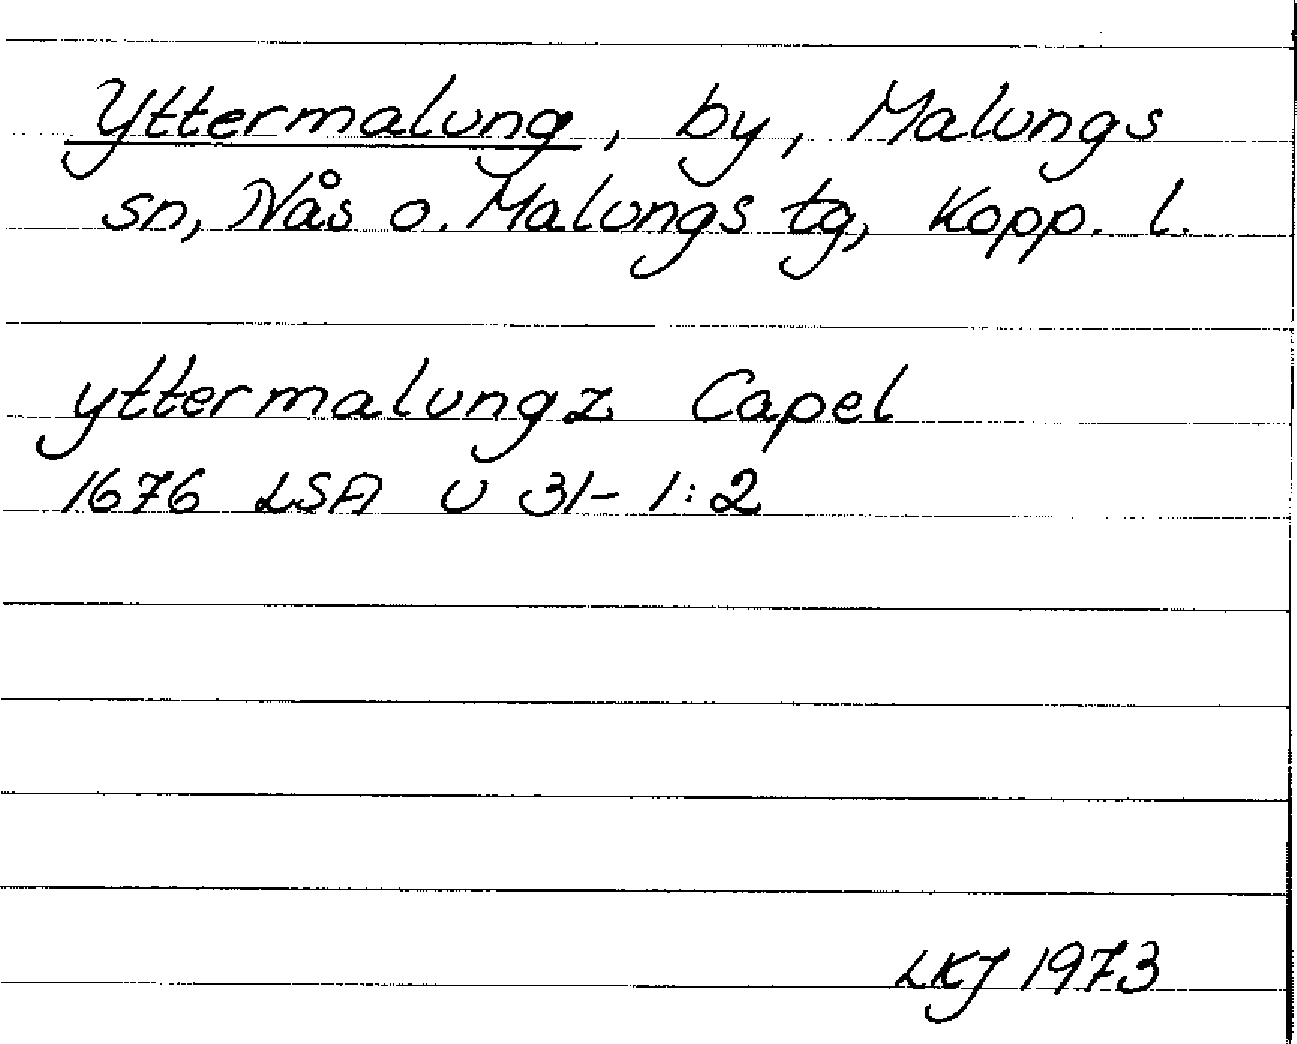 Yttermalung, by, Malungs
sn, Nås o. Malungs tg, Kopp. l.
yttermalungz Capel
1676 LSA U 31-1:2
LKJ 1973